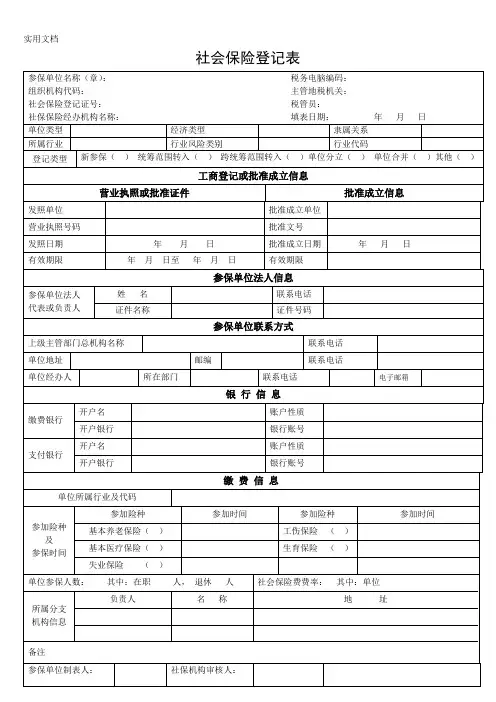 实用文档
社会保险登记表
参保单位名称（章）： 税务电脑编码：
组织机构代码： 主管地税机关：
社会保险登记证号： 税管员：
社保保险经办机构名称： 填表日期： 年 月 日
单位类型 经济类型 隶属关系
所属行业 行业风险类别 行业代码
登记类型 新参保（ ） 统筹范围转入（ ） 跨统筹范围转入（ ）单位分立（ ） 单位合并（ ）其他（ ）
工商登记或批准成立信息
营业执照或批准证件 批准成立信息
发照单位 批准成立单位
营业执照号码 批准文号
发照日期 年 月 日 批准成立日期 年 月 日
有效期限 年 月 日至 年 月 日 有效期限
参保单位法人信息
参保单位法人代表或负责人 姓 名 联系电话
证件名称 证件号码
参保单位联系方式
上级主管部门总机构名称 联系电话
单位地址 邮编 联系电话
单位经办人 所在部门 联系电话 电子邮箱
银 行 信 息
缴费银行 开户名 账户性质
开户银行 银行账号
支付银行 开户名 账户性质
开户银行 银行账号
缴 费 信 息
单位所属行业及代码
参加险种及参保时间 参加险种 参加时间 参加险种 参加时间
基本养老保险（ ） 工伤保险 （ ）
基本医疗保险（ ） 生育保险 （ ）
失业保险 （ ）
单位参保人数： 其中：在职 人， 退休 人 社会保险费费率： 其中：单位
所属分支机构信息 负责人 名 称 地 址
备注
参保单位制表人： 社保机构审核人：